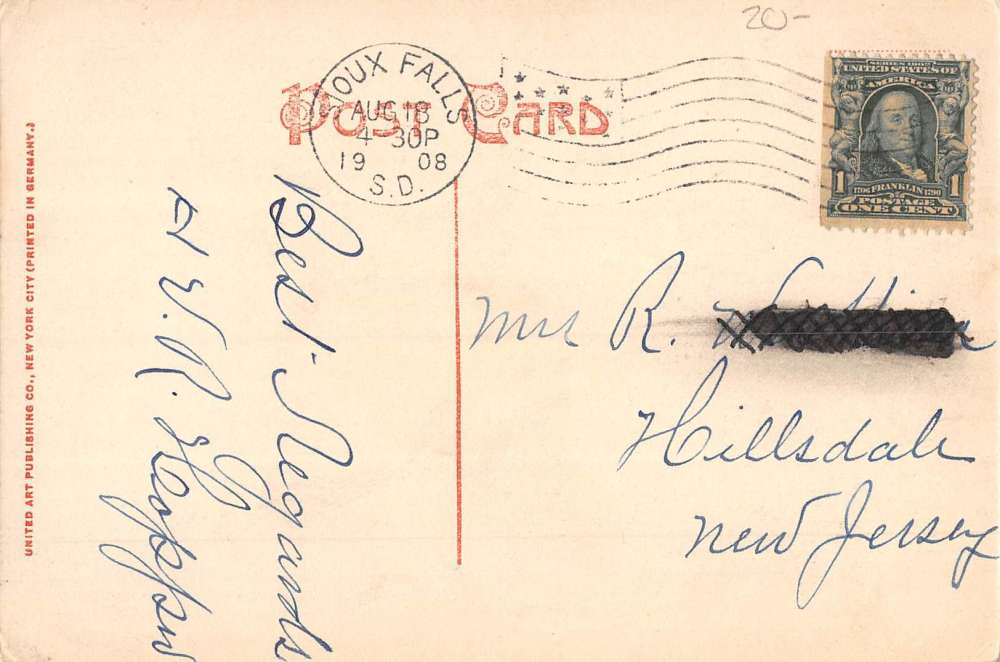 20-
POST CARD
SIOUX FALLS
AUG 18
4-30P
1908
S.D.
SERIES 1902
UNITED STATES OF
AMERICA
1 1706 FRANKLIN 1790 1
POSTAGE
ONE CENT
UNITED ART PUBLISHING CO., NEW YORK CITY (PRINTED IN GERMANY.)
Best Regards
R.
Mrs R.
Hillsdale
New Jersey